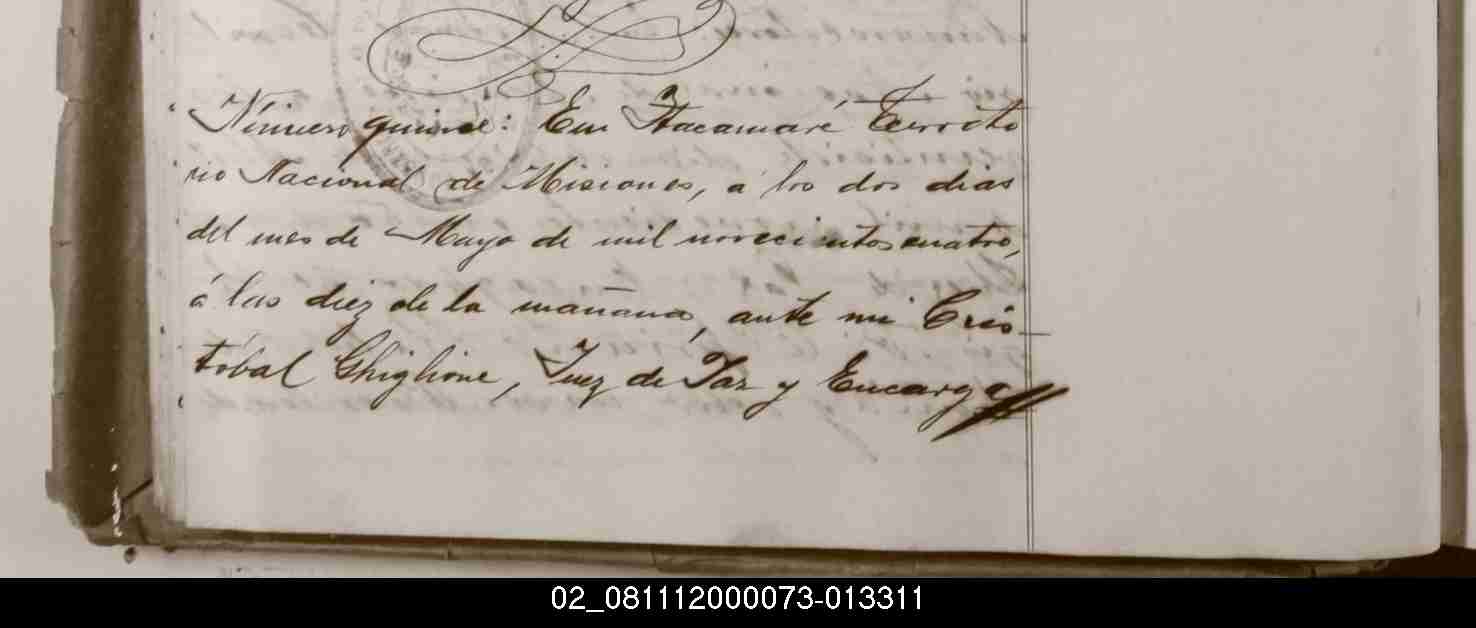 Número quince: En Itacaruaré Territo
rio Nacional de Misiones, á los dos dias
del mes de Mayo de mil novecientos cuatro,
á las diez de la mañana, ante mi Cris-
tóbal Ghiglione, Juez de Paz y Encarga
02_081112000073-013311